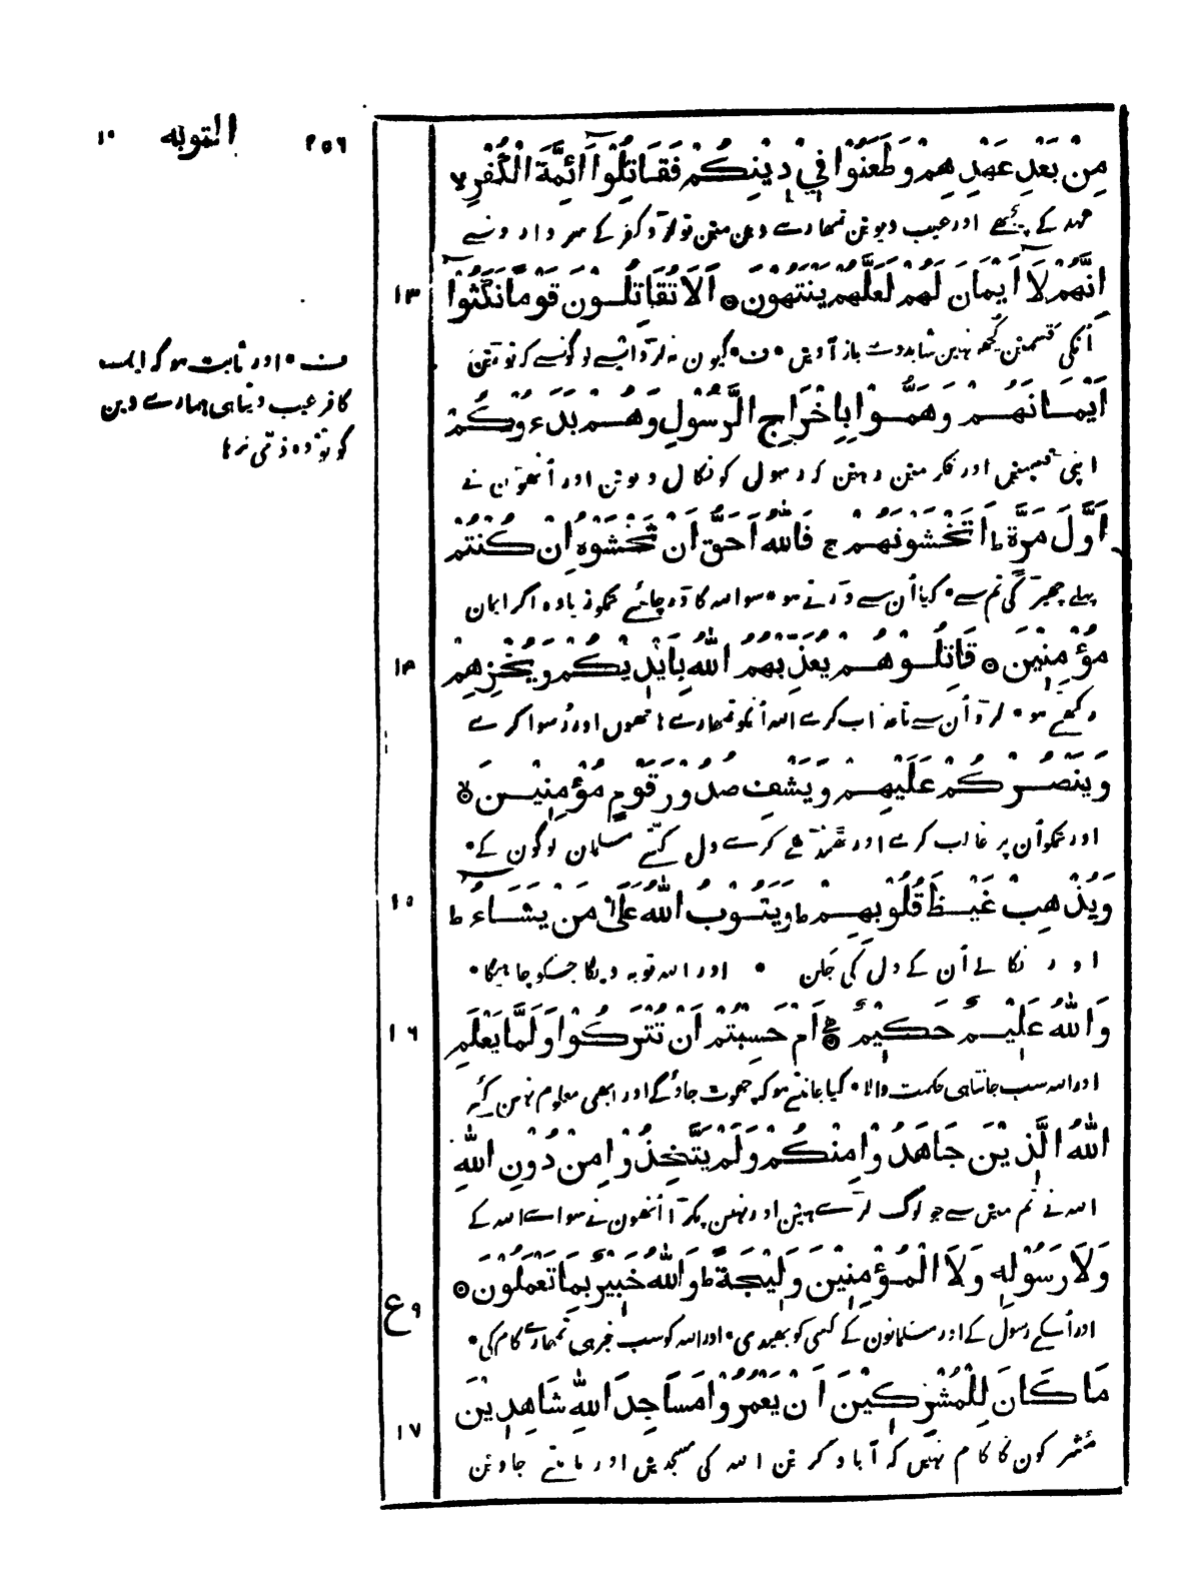 ٢٥٦ التوبه ١٠
مِنْ بَعْدِ عَهْدِهِمْ وَطَعَنُوْا فِيْ دِيْنِكُمْ فَقَاتِلُوْا اَئِمَّةَ الْكُفْرِ لا
عہد کے پیچھے اور عیب دیوین تمھارے دین مین تو لڑو کفر کے سردارونسے
١٣ اِنَّهُمْ لَا اَيْمَانَ لَهُمْ لَعَلَّهُمْ يَنْتَهُوْنَ ۝ اَلَا تُقَاتِلُوْنَ قَوْمًا نَكَثُوْا
اُنکی قسمین کچھ نہین شاید وے باز آوین • ف • کیون نہ لڑو ایسے لوگونسے کہ توڑین
اَيْمَانَهُمْ وَهَمُّوْا بِاِخْرَاجِ الرَّسُوْلِ وَهُمْ بَدَءُوْكُمْ
اپنی قسمین اور فکر مین رہین کہ رسول کو نکال دیوین اور اُنھون نے
اَوَّلَ مَرَّةٍ ط اَتَخْشَوْنَهُمْ ج فَاللّٰهُ اَحَقُّ اَنْ تَخْشَوْهُ اِنْ كُنْتُمْ
پہلے چھیڑ کی تم سے • کیا اُن سے ڈرتے ہو • سو اللہ کا ڈر چاہئے تمکو زیادہ اگر ایمان
١٤ مُؤْمِنِيْنَ ۝ قَاتِلُوْهُمْ يُعَذِّبْهُمُ اللّٰهُ بِاَيْدِيْكُمْ وَيُخْزِهِمْ
رکھتے ہو • لڑو اُن سے تا عذاب کرے اللہ اُنکو تمھارے ہاتھون اور رُسوا کرے
وَيَنْصُرْكُمْ عَلَيْهِمْ وَيَشْفِ صُدُوْرَ قَوْمٍ مُؤْمِنِيْنَ ۝
اور تمکو اُن پر غالب کرے اور ٹھنڈھے کرے دل کتنے مسلمان لوگون کے •
١٥ وَيُذْهِبْ غَيْظَ قُلُوْبِهِمْ ط وَيَتُوْبُ اللّٰهُ عَلٰى مَنْ يَشَاءُ ط
اور نکالے اُن کے دل کی جَلن • اور اللہ توبہ دیگا جسکو چاہیگا •
١٦ وَاللّٰهُ عَلِيْمٌ حَكِيْمٌ ۝ اَمْ حَسِبْتُمْ اَنْ تُتْرَكُوْا وَلَمَّا يَعْلَمِ
اور اللہ سب جانتا ہی حکمت والا • کیا جانتے ہو کہ چھوٹ جاؤگے اور ابھی معلوم نہین کئے
اللّٰهُ الَّذِيْنَ جَاهَدُوْا مِنْكُمْ وَلَمْ يَتَّخِذُوْا مِنْ دُوْنِ اللّٰهِ
اللہ نے تم مین سے جو لوگ لڑے ہین اور نہین پکڑا اُنھون نے سواے اللہ کے
ع ٩ وَلَا رَسُوْلِهٖ وَلَا الْمُؤْمِنِيْنَ وَلِيْجَةً ط وَاللّٰهُ خَبِيْرٌ بِمَا تَعْمَلُوْنَ ۝
اور اُسکے رسول کے اور مسلمانون کے کسی کو بھیدی • اور اللہ کو سب خبر ہی تمھارے کام کی •
١٧ مَا كَانَ لِلْمُشْرِكِيْنَ اَنْ يَعْمُرُوْا مَسَاجِدَ اللّٰهِ شَاهِدِيْنَ
مُشرکون کا کام نہین کہ آباد کرین اللہ کی مسجدین اور مانتے جاوین
ف • اور ثابت ہو کہ ایک
کافر عیب دیتا ہی ہمارے دین
کو تو وہ ذمّی نرہا